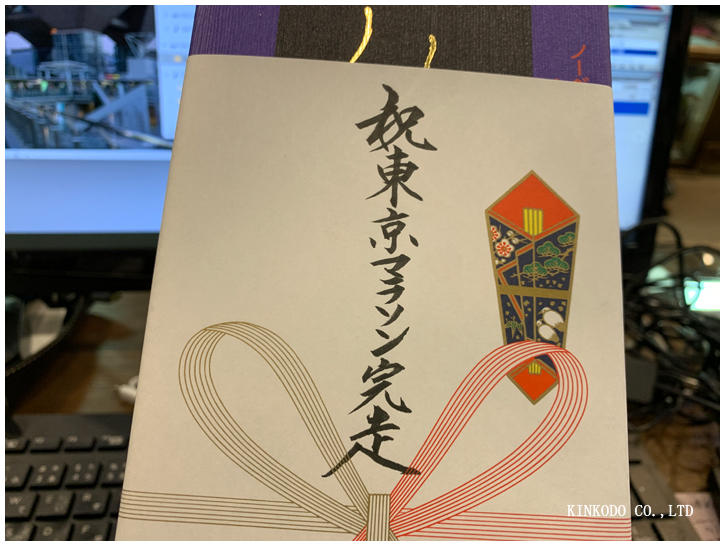 祝東京マラソン完走
ノーベ
KINKODO CO.,LTD